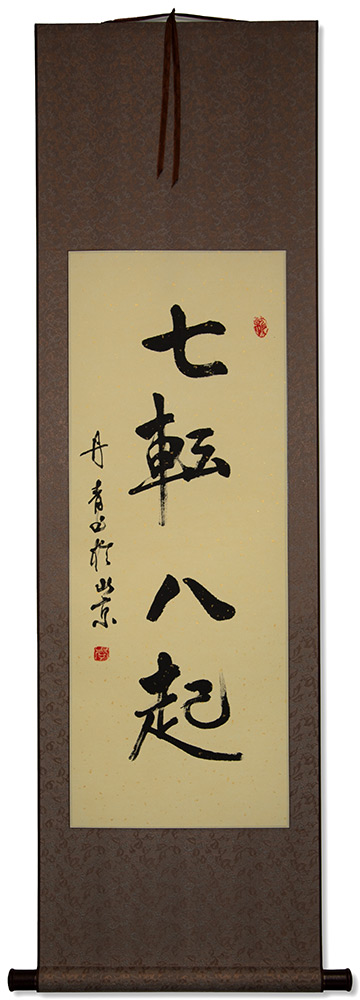 七転八起
丹青书於北京